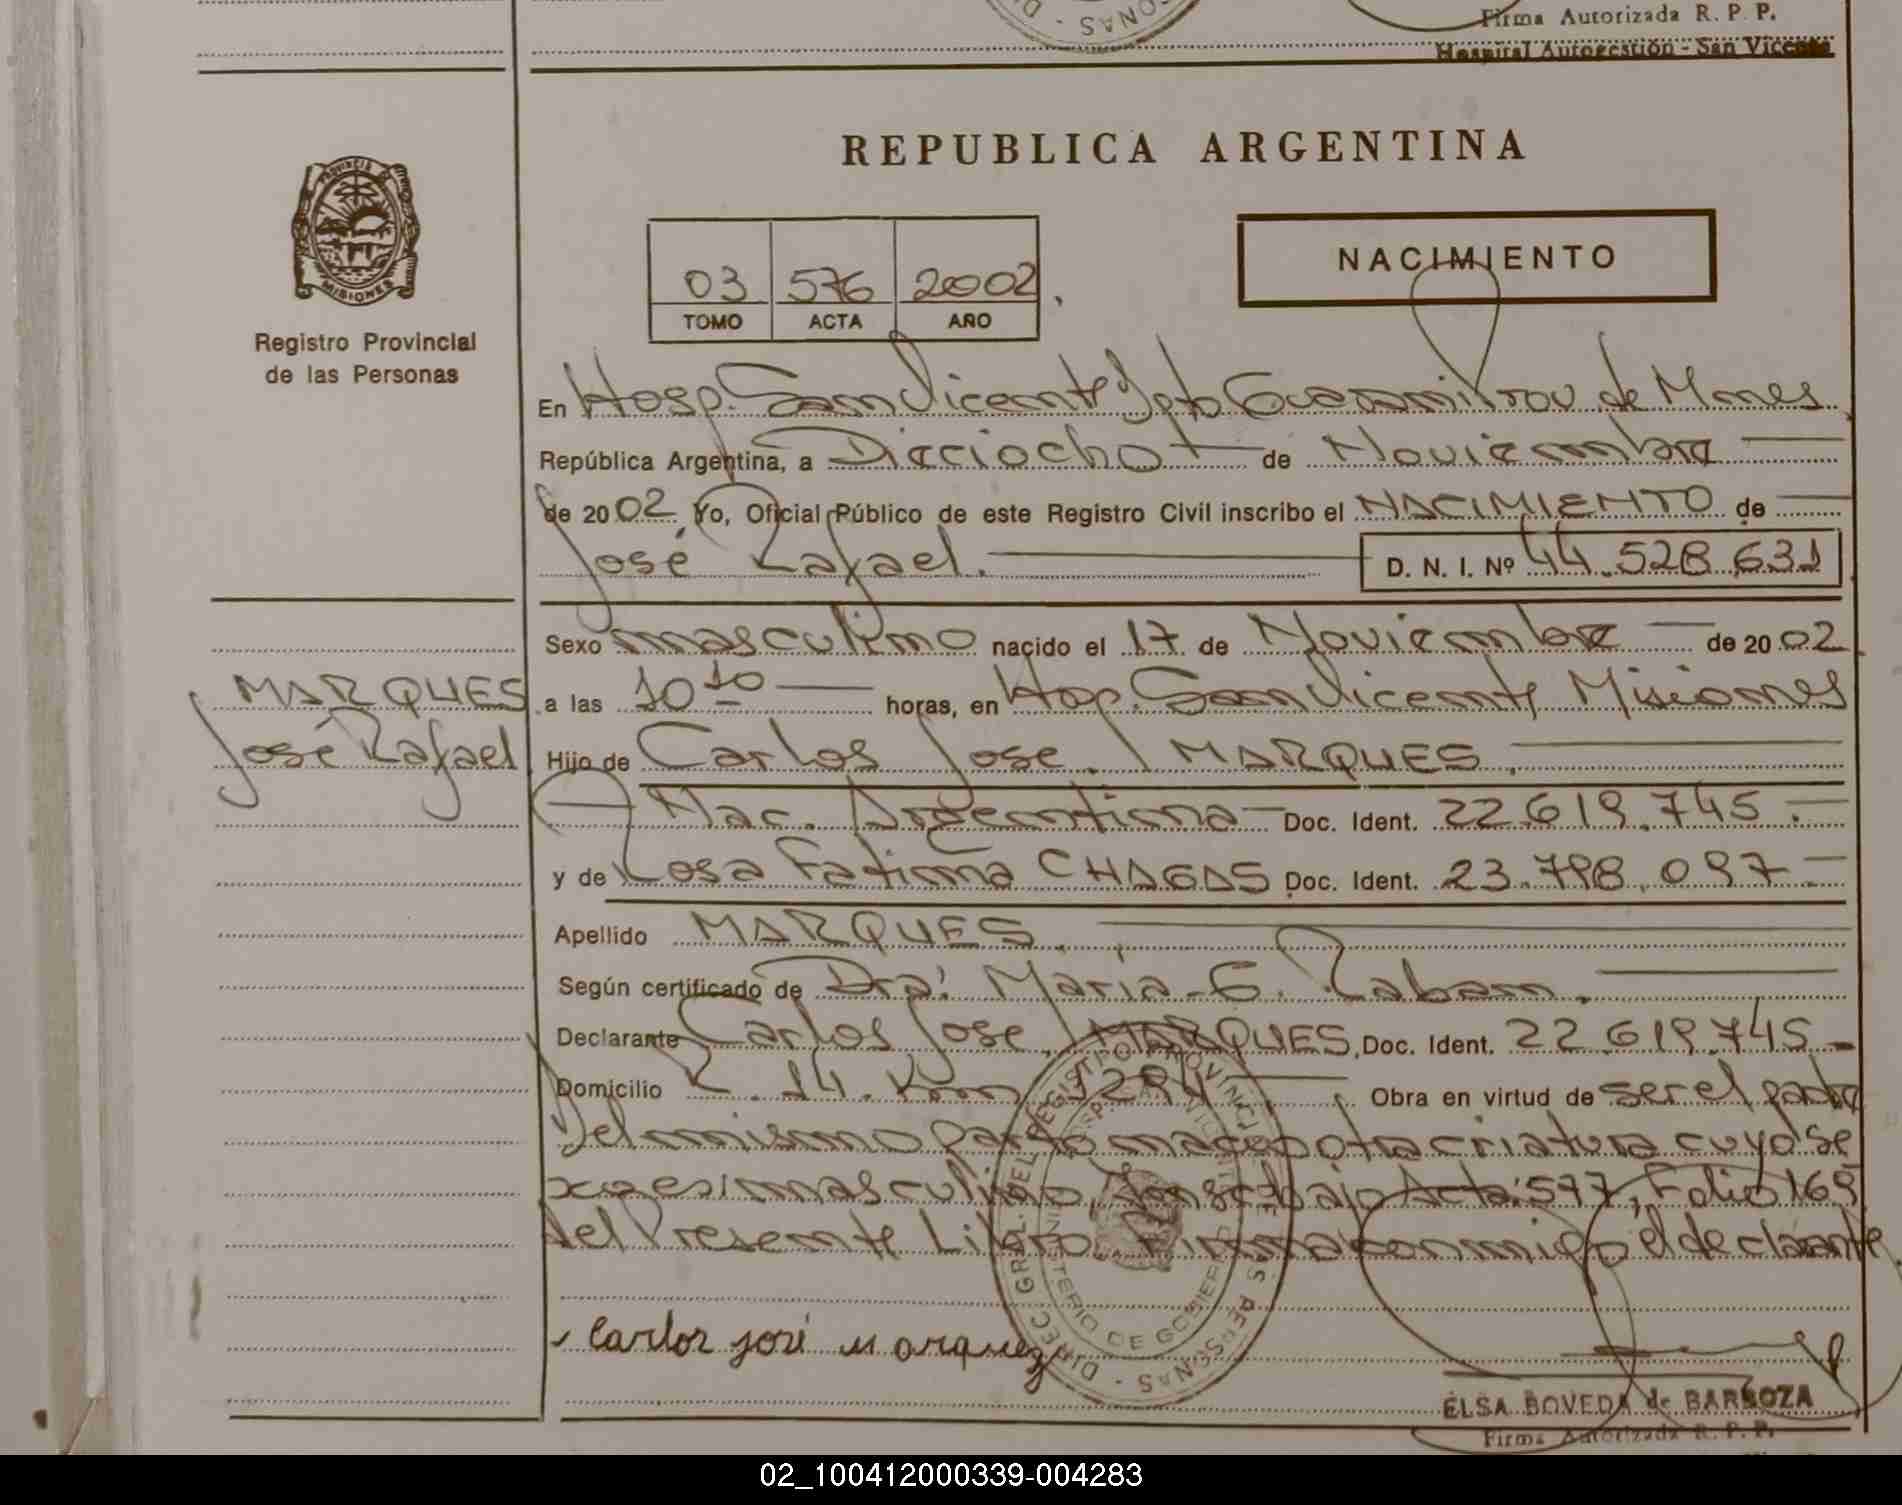 Firma Autorizada R. P. P.
Hospital Autogestión - San Vicente
REPUBLICA ARGENTINA
PROVINCIA DE
MISIONES
Registro Provincial
de las Personas
03 576 2002
TOMO ACTA AÑO
NACIMIENTO
En Hosp. San Vicente Dpto Guarani Prov. de Mnes
República Argentina, a Dieciocho de Noviembre
de 2002 Yo, Oficial Público de este Registro Civil inscribo el NACIMIENTO de
José Rafael. D. N. I. Nº 44.528.631
Sexo masculino nacido el 17 de Noviembre de 2002
MARQUES
José Rafael
a las 10 10 horas, en Hop. San Vicente Misiones
Hijo de Carlos Jose MARQUES.
Nac. Argentina Doc. Ident. 22.619.745
y de Rosa Fatima CHAGAS Doc. Ident. 23.798.097
Apellido MARQUES.
Según certificado de Dra. Maria E. Raban.
Declarante Carlos Jose MARQUES, Doc. Ident. 22.619.745
Domicilio R. 14. Km 1294 Obra en virtud de ser el padre
Del mismo parto nacio otra criatura cuyo se
xo es masculino, Inscto bajo Acta: 577, Folio 169
del Presente Libro. Firma conmigo el declarante.
DIREC GRAL. DEL REGISTRO PROVINCIAL DE LAS PERSONAS
MINISTERIO DE GOBIERNO
Carlos josé marquez
ELSA BOVEDA de BARBOZA
Firma Autorizada R. P. P.
02_100412000339-004283